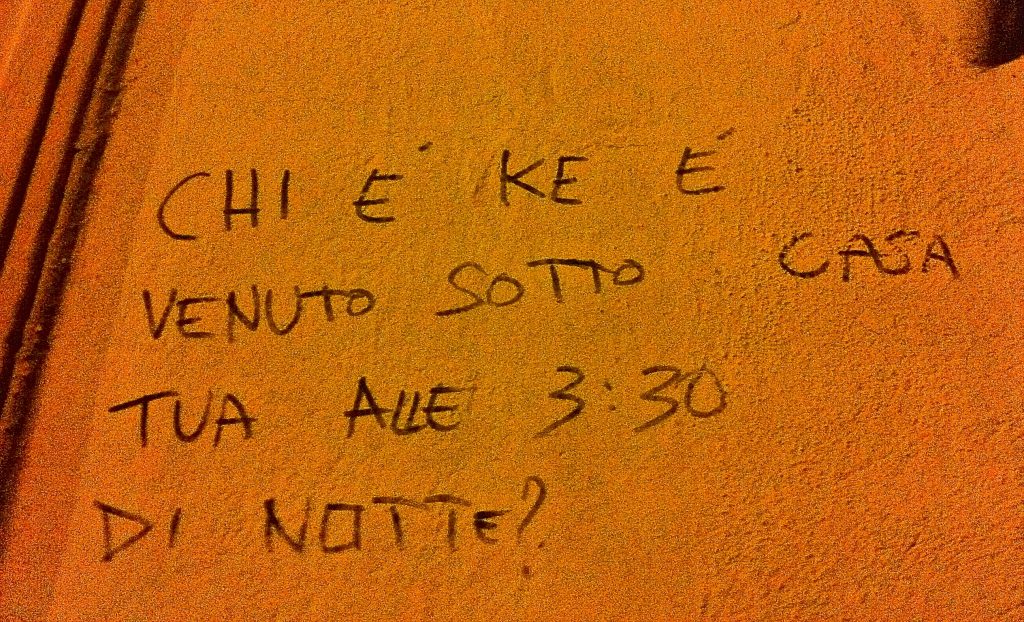 CHI É KE É
VENUTO SOTTO CASA
TUA ALLE 3:30
DI NOTTE?